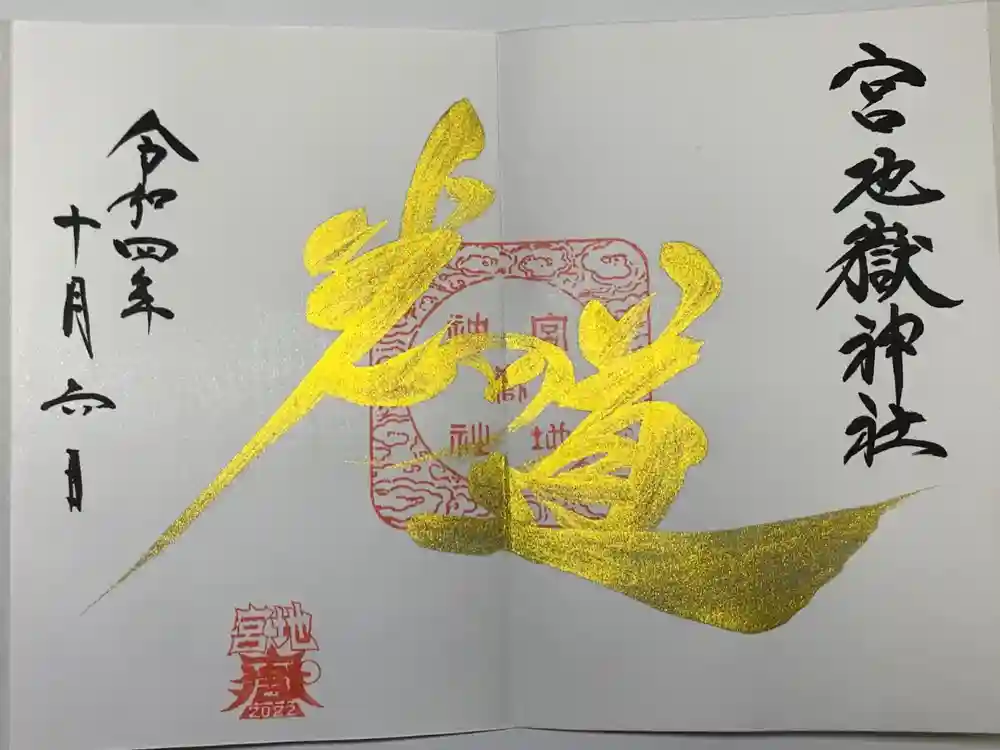 宮地嶽神社
光の道
宮地嶽神社
令和四年
十月六日
宮地
2022